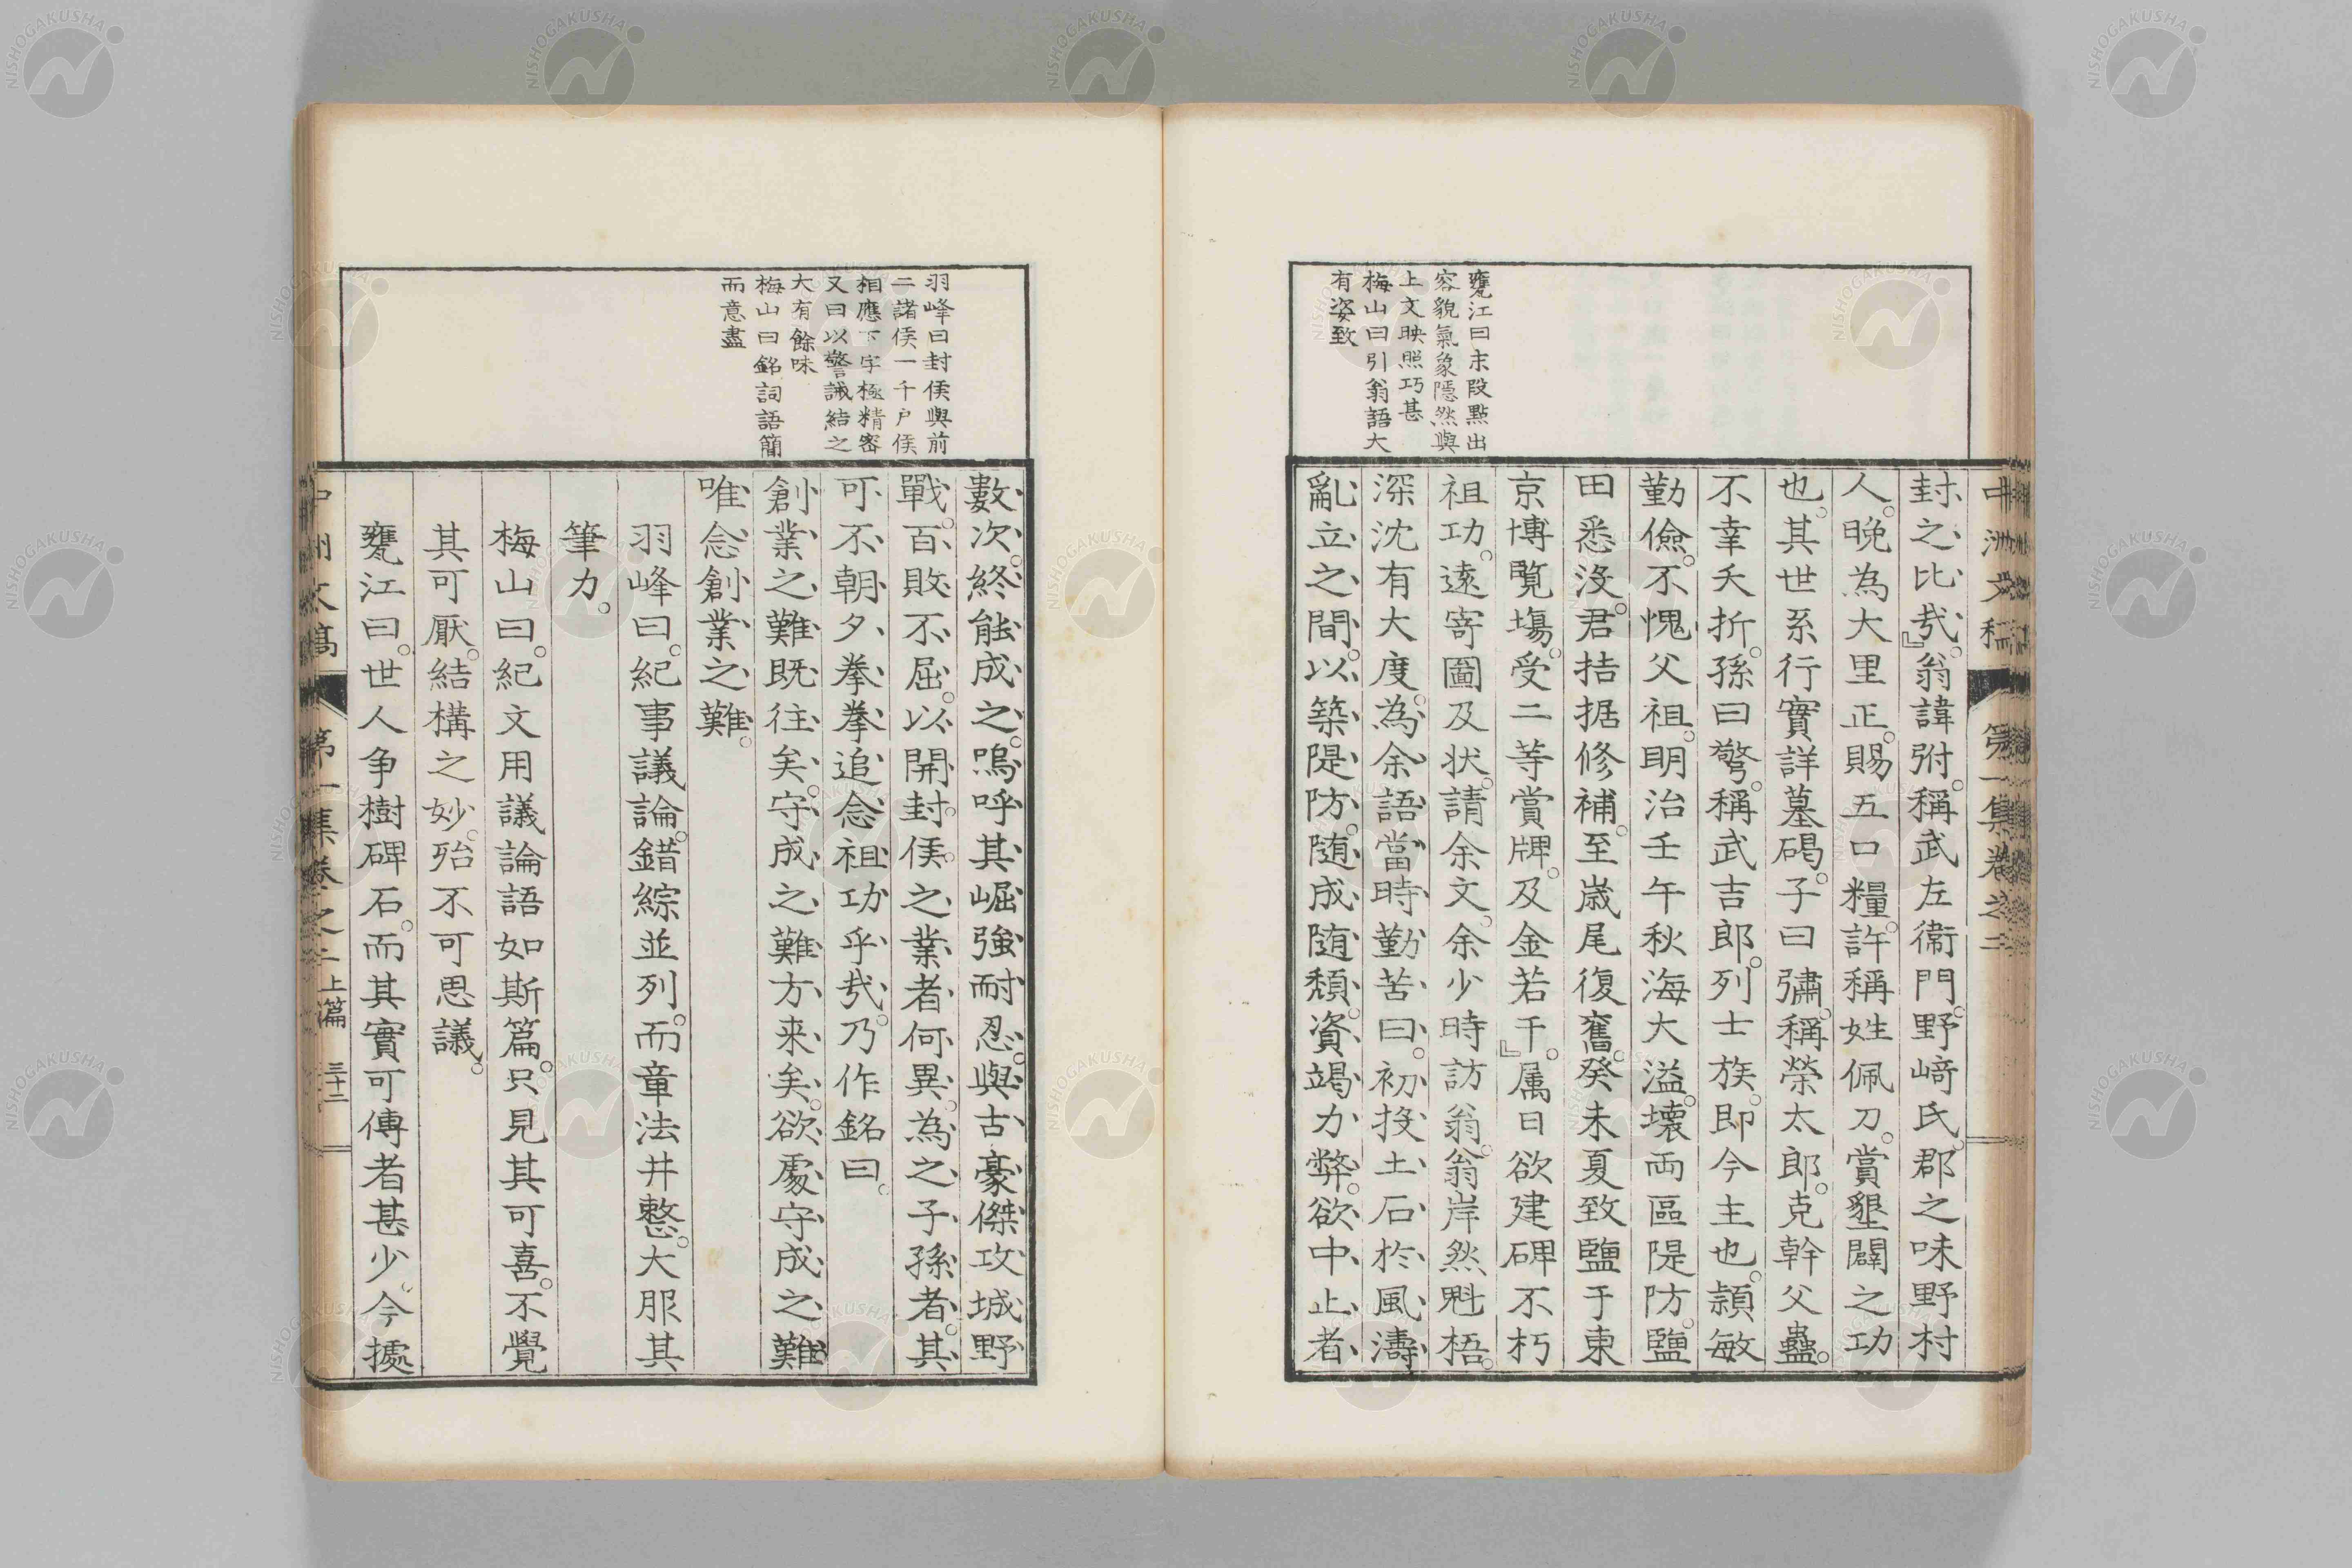 甕江曰末段點出
容貌氣象隱然與
上文映照巧甚
梅山曰引翁語大
有姿致
封之比㢤。』翁諱弣。稱武左衞門。野﨑氏。郡之味野村
人。晩為大里正。賜五口糧。許稱姓佩刀。賞墾闢之功
也。其世系行實詳墓碣。子曰彇。稱榮太郎。克幹父蠱。
不幸夭折。孫曰䇔。稱武吉郎。列士族。即今主也。頴敏
勤儉。不愧父祖。明治壬午秋海大溢。壊両區隄防。鹽
田悉沒。君拮据修補。至歳尾復舊。癸未夏致鹽于東
京博覧塲。受二等賞牌。及金若干。』属日欲建碑不朽
祖功。遠寄圖及状。請余文。余少時訪翁。翁岸然魁梧。
深沈有大度。為余語當時勤苦曰。初投土石於風濤
亂立之間。以築隄防。随成随頽。資竭力弊。欲中止者
中洲文稿
第一集卷之二
羽峰曰封侯與前
二諸侯一千戸侯
相應下字極精密
又曰以警誡結之
大有餘味
梅山曰銘詞語簡
而意盡
數次。終能成之。嗚呼其崛強耐忍。與古豪傑攻城野
戰。百敗不屈。以開封侯之業者何異。為之子孫者。其
可不朝夕拳拳追念祖功乎㢤。乃作銘曰。
創業之難既往矣。守成之難方来矣。欲處守成之難
唯念創業之難。
羽峰曰。紀事議論。錯綜並列。而章法井整。大服其
筆力。
梅山曰。紀文用議論語如斯篇。只見其可喜。不覺
其可厭。結構之妙。殆不可思議。
甕江曰。世人争樹碑石。而其實可傳者甚少。今據
中洲文稿
第一集卷之二上篇
三十二